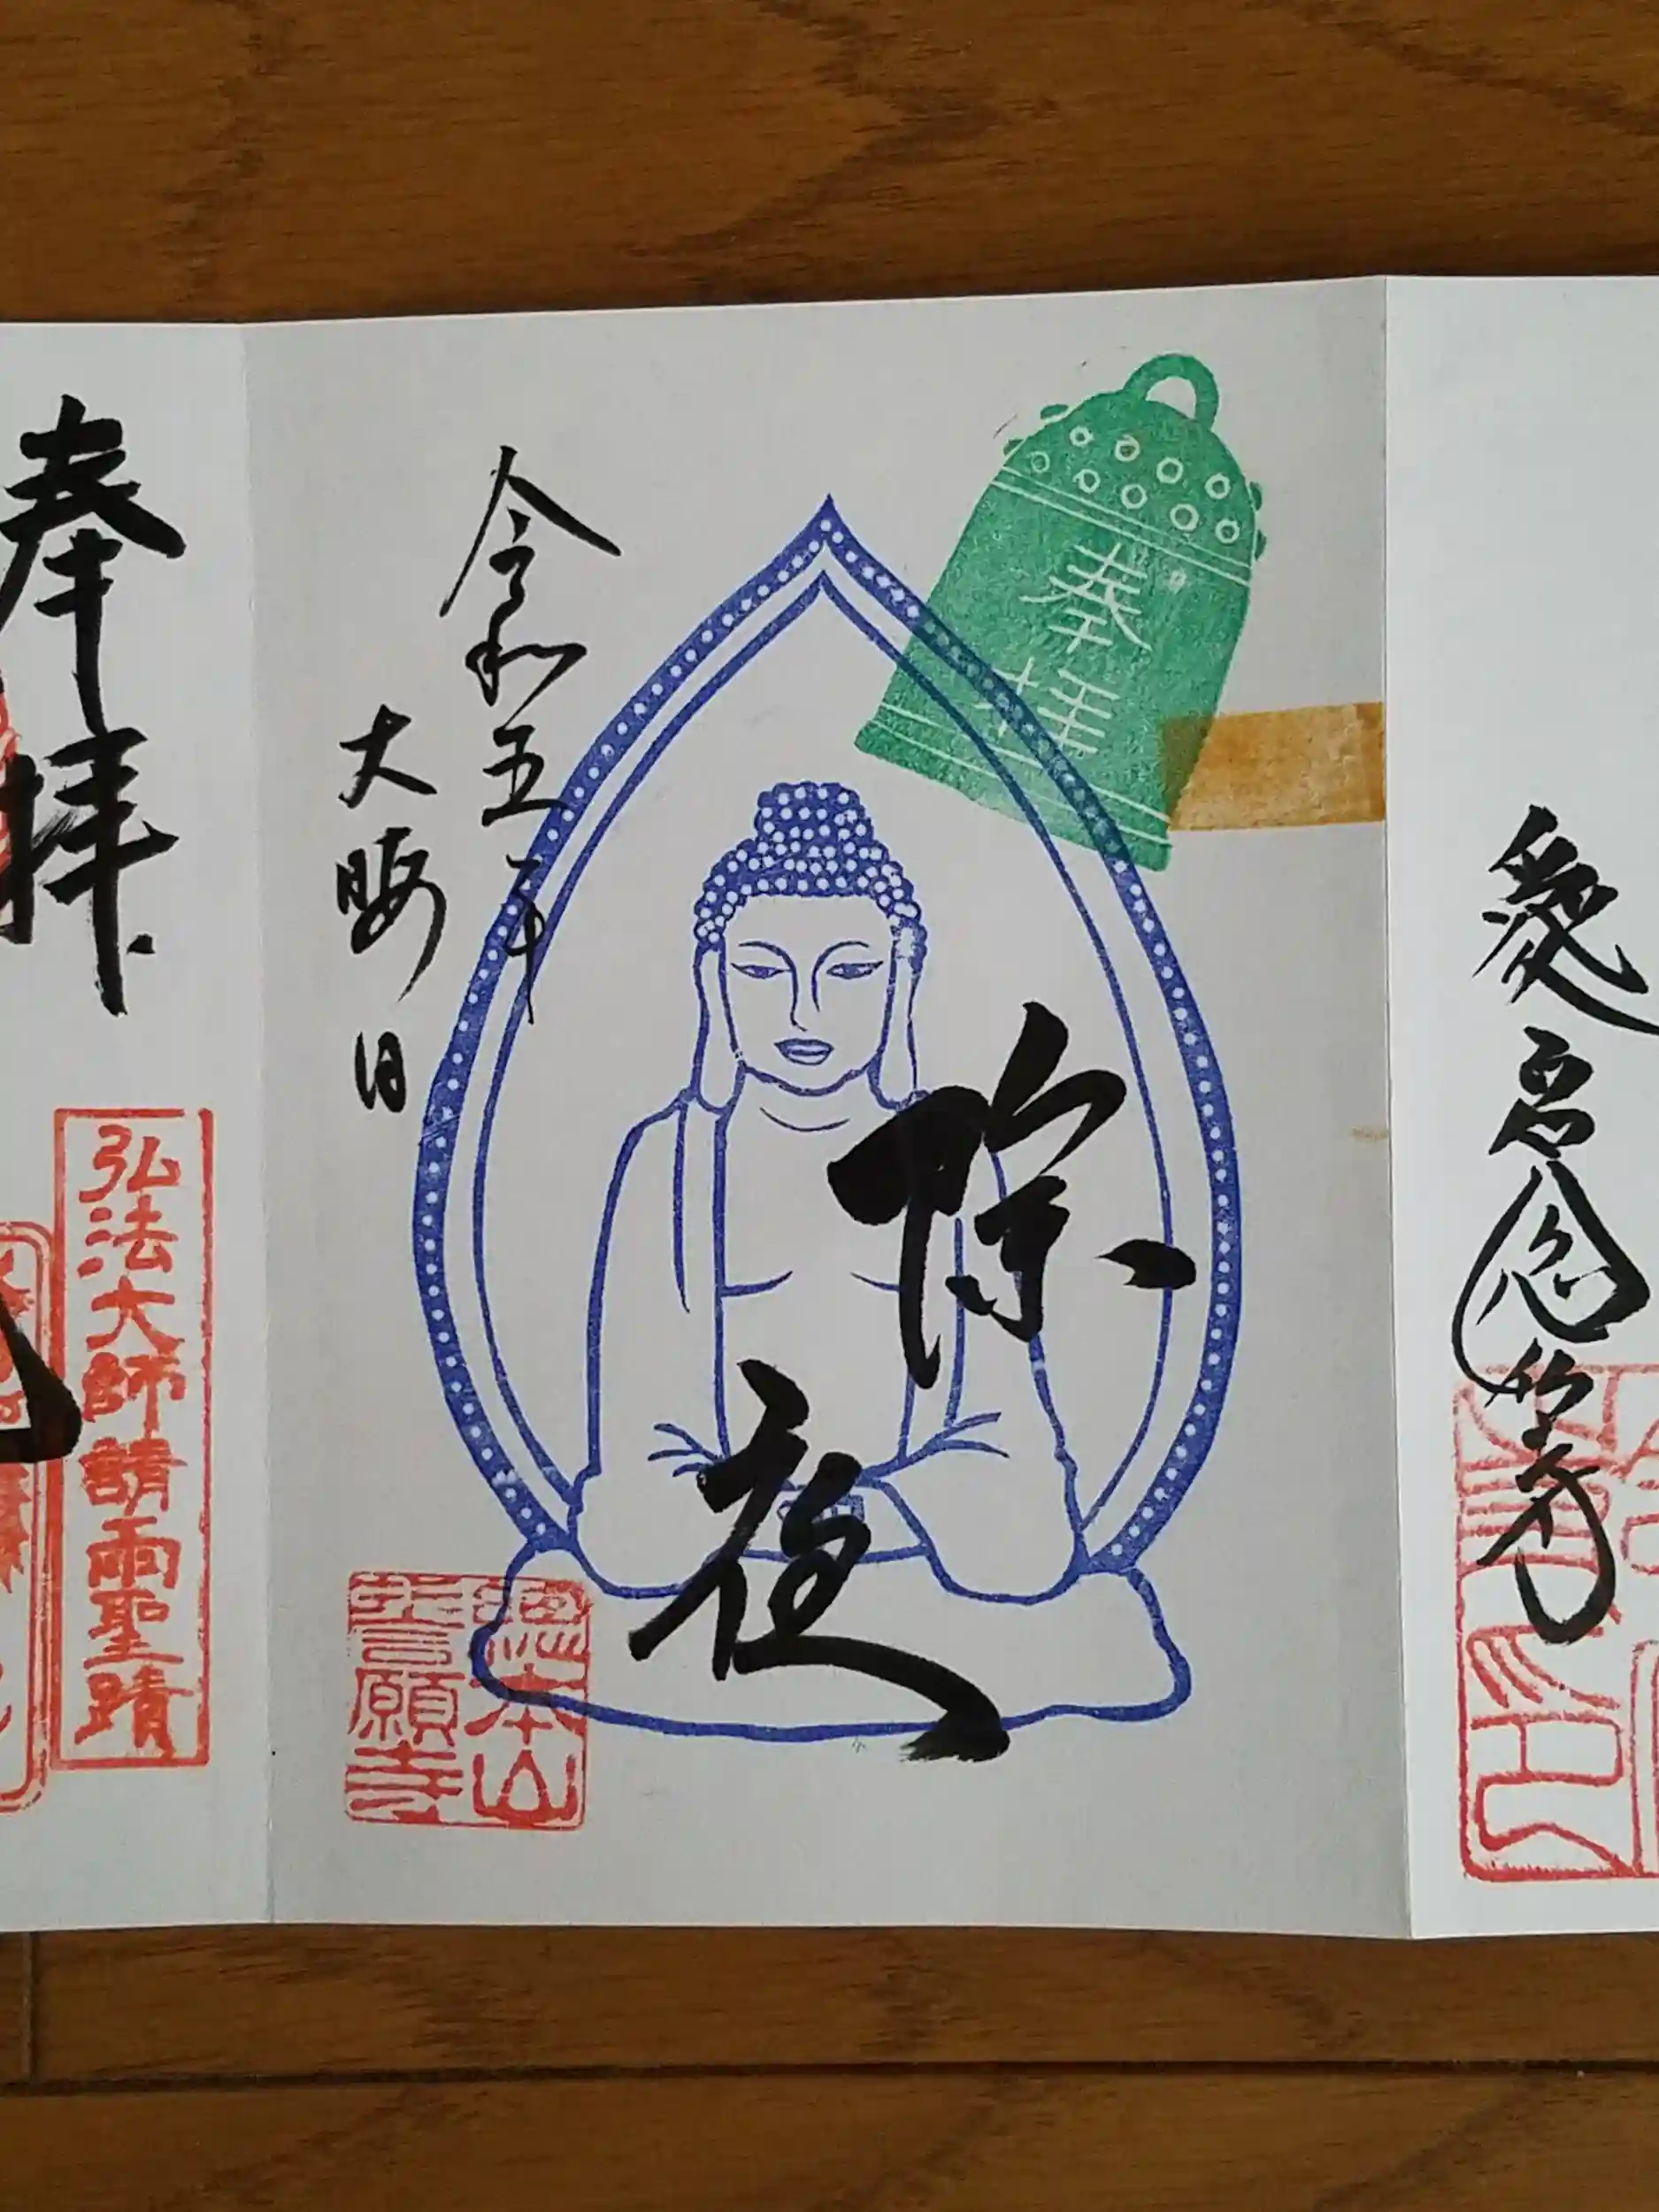 愛宕念仏寺
奉拝
除夜
令和五年
大晦日
總本山
誓願寺
奉拝
弘法大師請雨聖蹟